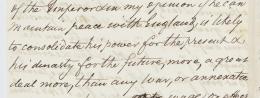 of the Emperor din my opinion if he can
maintain peace with England, is likely
to consolidate his power for the present &
his dynasty for the future, more, a great
deal more, than any war, or annexation
wage or other